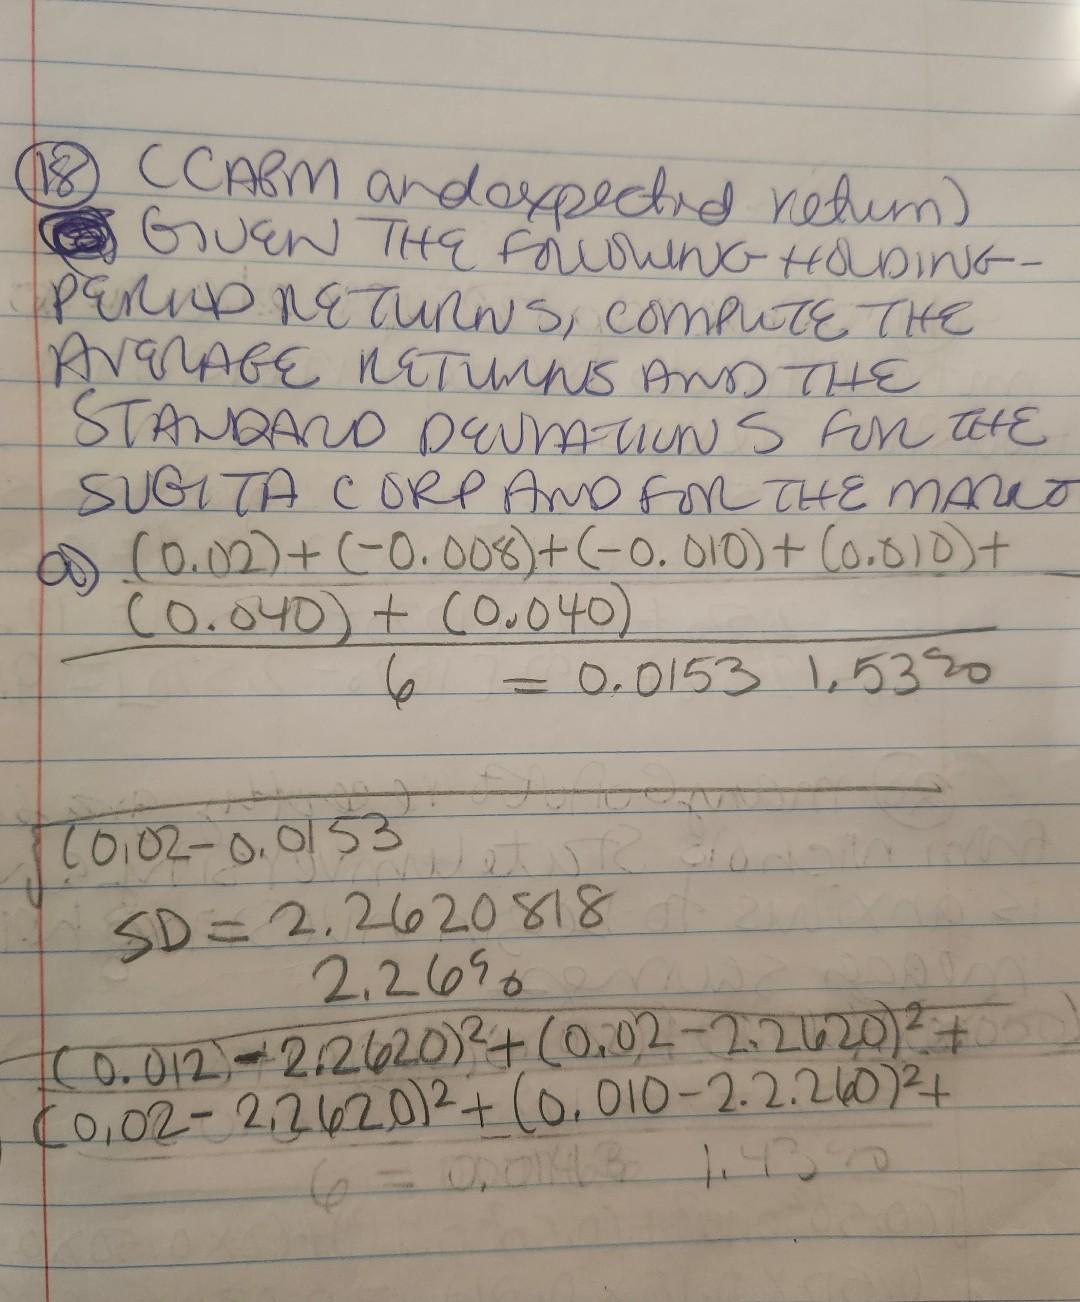 18 (CAPM and expected return)
GIVEN THE FOLLOWING HOLDING-
PERIOD RETURNS, COMPUTE THE
AVERAGE RETURNS AND THE
STANDARD DEVIATIONS FOR THE
SUGITA CORP AND FOR THE MARKET
a) (0.02)+(-0.008)+(-0.010)+(0.010)+
(0.040) + (0.040)
6 = 0.0153 1.53%
√(0.02-0.0153
SD = 2.2620818
2.26%
(0.012)-2.2620)²+(0.02-2.2620)²+
(0.02-2.2620)²+(0.010-2.2.260)²+
6 = 1.43%